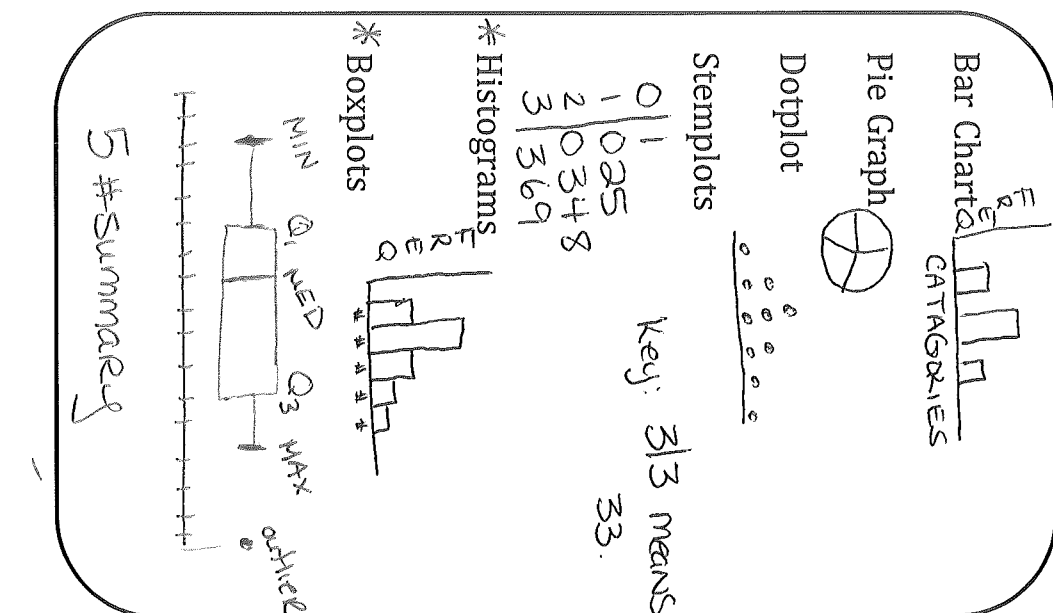 Bar Chart
FREQ
CATAGORIES
Pie Graph
Dotplot
Stemplots
0 | 1
1 | 025
2 | 0348
3 | 369
Key: 3|3 means
33.
* Histograms
FREQ
# # # # #
* Boxplots
MIN Q1 MED Q3 MAX
outlier
5 #-Summary